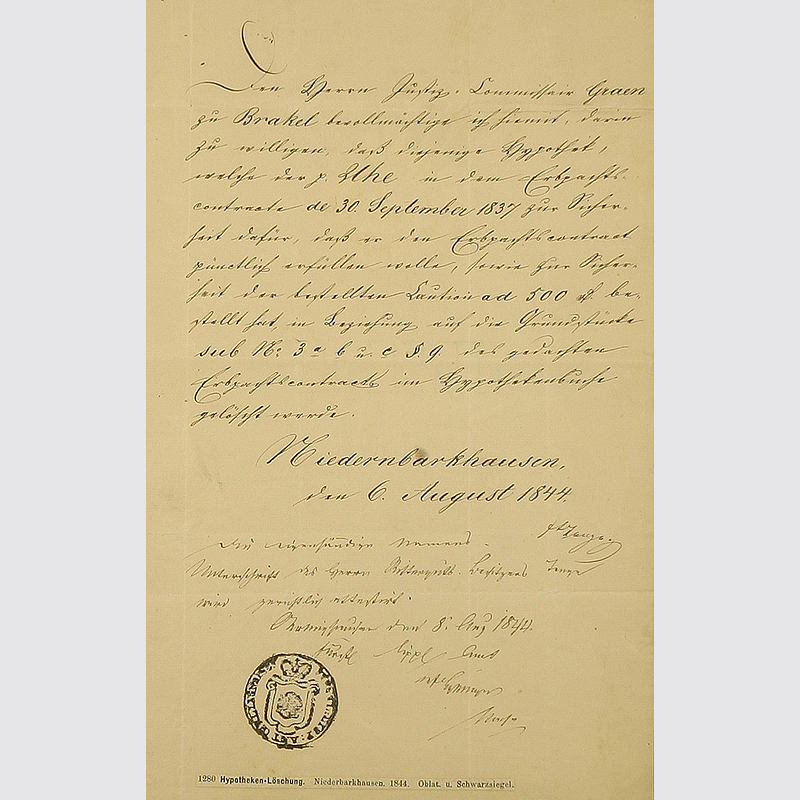 Den Herrn Justiz-Commissair Graen
zu Brakel bevollmächtige ich hiemit, darin
zu willigen, daß diejenige Hypothek,
welche der p. Uhe in dem Erbpachts-
contracte de 30. September 1837 zur Sicher-
heit dafür, daß er den Erbpachtscontract
pünctlich erfüllen wolle, sowie zur Sicher-
heit der bestellten Caution ad 500 rt. be-
stellt hat, in Beziehung auf die Grundstücke
sub No: 3 a b u. c §. 9. des gedachten
Erbpachtscontracts im Hypothekenbuche
gelöscht werde.
Niedernbarkhausen,
den 6. August 1844.
Tenge.
Die eigenhändige Namens-
Unterschrift des Herrn Ritterguts-Besitzers Tenge
wird gerichtlich attestirt.
den 8. Aug 1844.
Fürstl Lippl Amt
1280 Hypotheken-Löschung. Niederbarkhausen. 1844. Oblat. u. Schwarzsiegel.